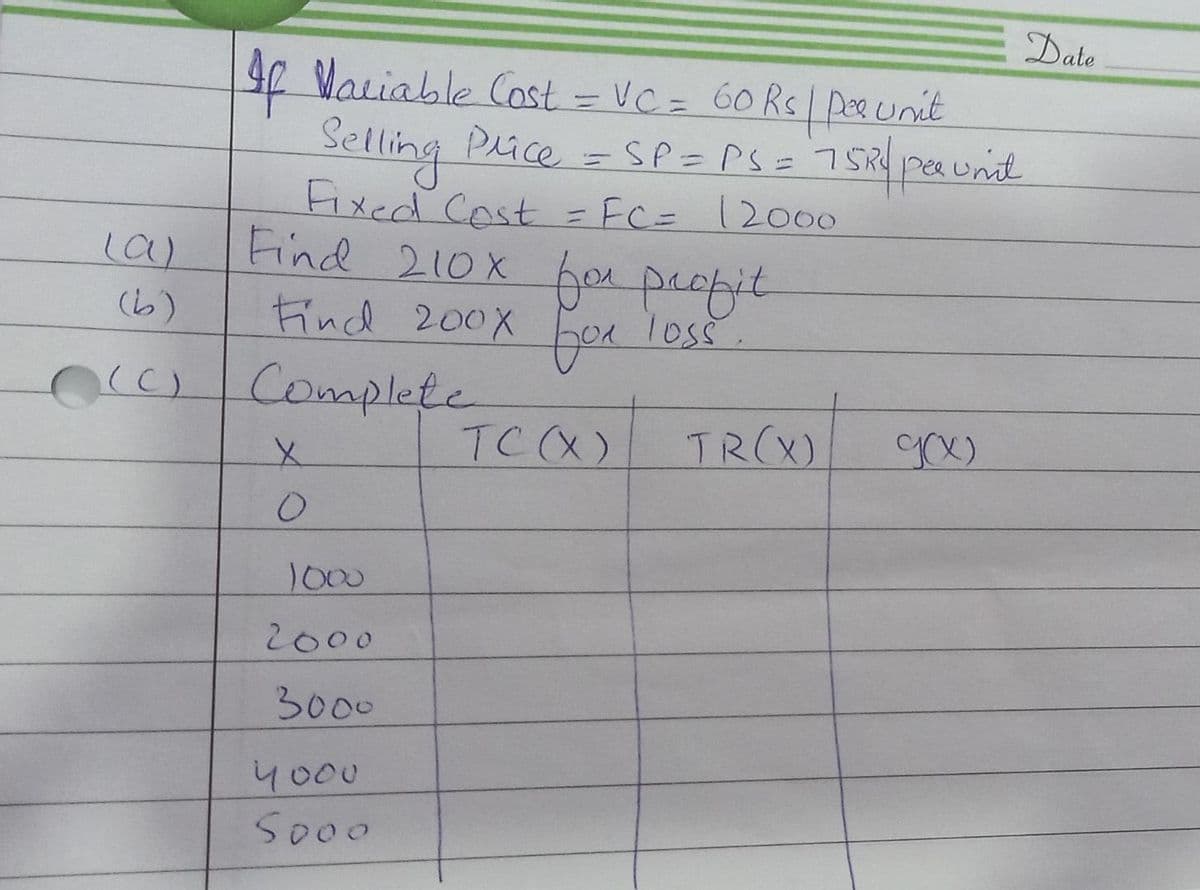 Date
If Variable Cost = VC = 60 Rs / per unit
Selling Price = SP = PS = 75Rs/ per unit
Fixed Cost = FC = 12000
(a) Find 210X for profit
(b) Find 200X for loss.
(C) Complete
X TC (X) TR(X) g(X)
0
1000
2000
3000
4000
5000